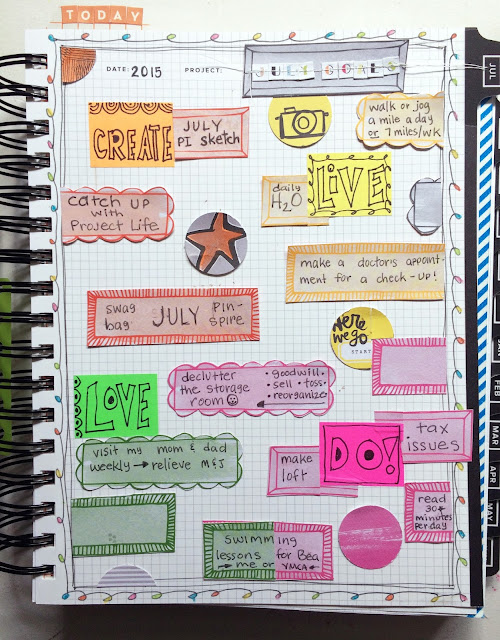 TODAY
DATE: 2015 PROJECT: JULY GOALS
CREATE
JULY
PI sketch
walk or jog
a mile a day
or 7 miles/wk
daily
H2O
LIVE
catch up
with
Project Life
make a doctor's appoint-
ment for a check-up!
swag
bag
JULY
PIN-
SPIRE
Here
we go
START
LOVE
declutter
the storage
room
• goodwill •
sell • toss •
• reorganize
visit my mom & dad
weekly → relieve M&J
make
loft
DO!
tax
issues
read
30+
minutes
per day
SWIMMING
lessons for Bea
→ me or YMCA
JUL
JAN
FEB
MAR
APR
MAY